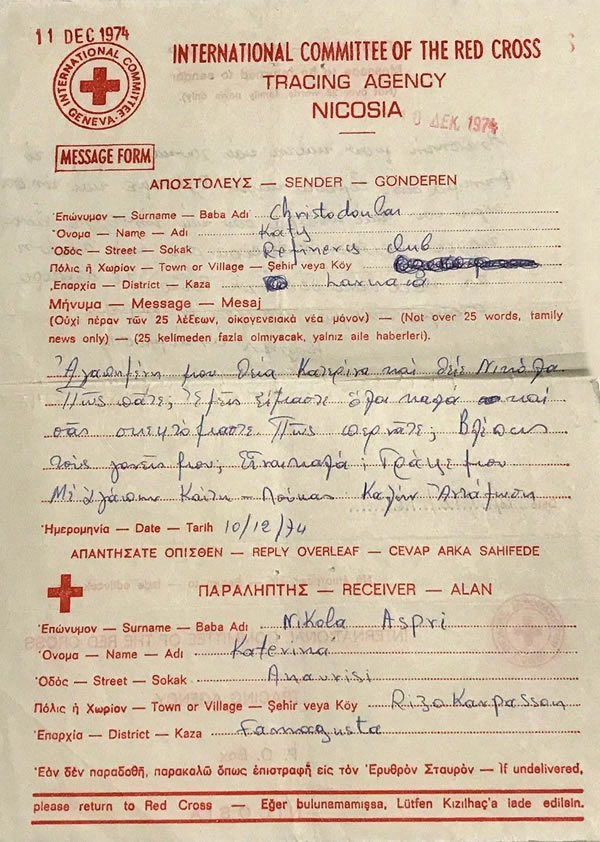 11 DEC 1974
INTERNATIONAL COMMITTEE
GENEVA
INTERNATIONAL COMMITTEE OF THE RED CROSS
TRACING AGENCY
NICOSIA
ΔΕΚ. 1974
MESSAGE FORM
ΑΠΟΣΤΟΛΕΥΣ — SENDER — GÖNDEREN
Ἐπώνυμον — Surname — Baba Adı Christodoulou
Ὄνομα — Name — Adı Katy
Ὁδός — Street — Sokak Refinery club
Πόλις ἤ Χωρίον — Town or Village — Şehir veya Köy
Ἐπαρχία — District — Kaza Larnaca
Μήνυμα — Message — Mesaj
(Οὐχί πέραν τῶν 25 λέξεων, οἰκογενειακά νέα μόνον) — (Not over 25 words, family
news only) — (25 kelimeden fazla olmıyacak, yalnız aile haberleri).
Ἀγαπημένη μου θεία Κατερίνα καί θεῖε Νικόλα
Πῶς πᾶτε; Ἐμεῖς εἴμαστε ὅλοι καλά καί
σᾶς σκεπτόμαστε Πῶς περνᾶτε; Βλέπεις
τούς γονεῖς μου; Εἶναι καλά; Γράψε μου
Μέ ἀγάπην Καίτη – Λούκας Καλήν Ἀντάμωση
Ἡμερομηνία — Date — Tarih 10/12/74
ΑΠΑΝΤΗΣΑΤΕ ΟΠΙΣΘΕΝ — REPLY OVERLEAF — CEVAP ARKA SAHIFEDE
ΠΑΡΑΛΗΠΤΗΣ — RECEIVER — ALAN
Ἐπώνυμον — Surname — Baba Adı Nikola Aspri
Ὄνομα — Name — Adı Katerina
Ὁδός — Street — Sokak Anavrisi
Πόλις ἤ Χωρίον — Town or Village — Şehir veya Köy RizoKarpasson
Ἐπαρχία — District — Kaza Famagusta
Ἐάν δέν παραδοθῆ, παρακαλῶ ὅπως ἐπιστραφῆ εἰς τόν Ἐρυθρόν Σταυρόν — If undelivered,
please return to Red Cross — Eğer bulunamamışsa, Lütfen Kızılhaç'a iade edilsin.